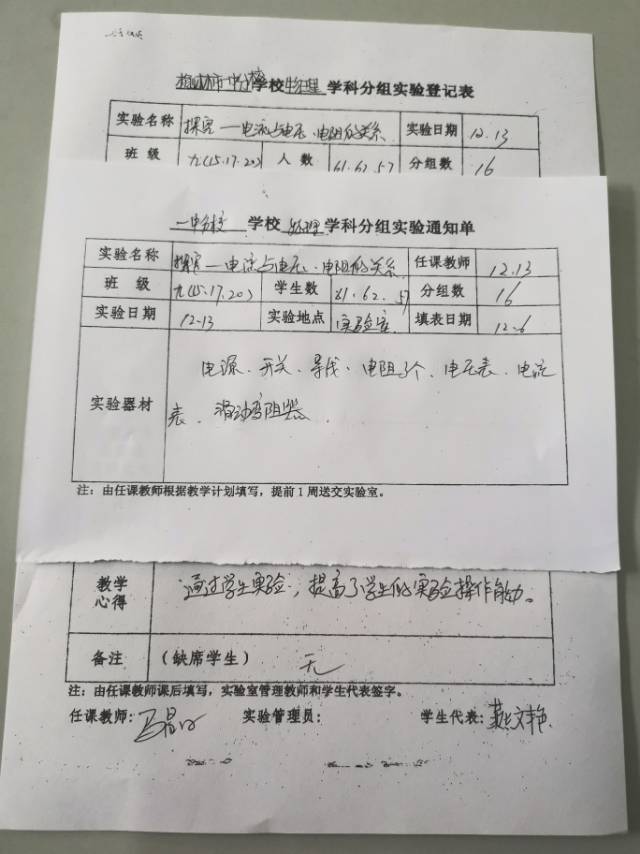 学校物理 学科分组实验登记表
实验名称 探究—电流与电压、电阻的关系 实验日期 12.13
班 级 九(15.17.20) 人 数 61.62.57 分组数 16
一中分校 学校 物理 学科分组实验通知单
实验名称 探究—电流与电压、电阻的关系 任课教师 12.13
班 级 九(15.17.20) 学生数 61.62.57 分组数 16
实验日期 12.13 实验地点 实验室 填表日期 12.6
实验器材 电源、开关、导线、电阻3个、电压表、电流
表、滑动变阻器
注：由任课教师根据教学计划填写，提前1周送交实验室。
教学心得 通过学生实验，提高了学生的实验操作能力。
备注 (缺席学生) 无
注：由任课教师课后填写，实验室管理教师和学生代表签字。
任课教师： 实验管理员： 学生代表：